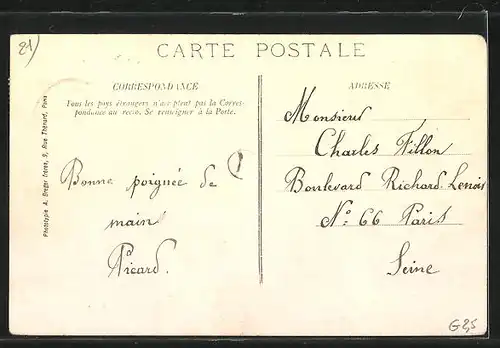 21)
CARTE POSTALE
CORRESPONDANCE
Tous les pays étrangers n'acceptent pas la Corres-
pondance au recto. Se renseigner à la Poste.
ADRESSE
Phototypie A. Breger frères, 9, Rue Thénard, Paris
Bonne poignée de
main
Picard.
Monsieur
Charles Fillon
Boulevard Richard-Lenoir
No 66 Paris
Seine
G2,5